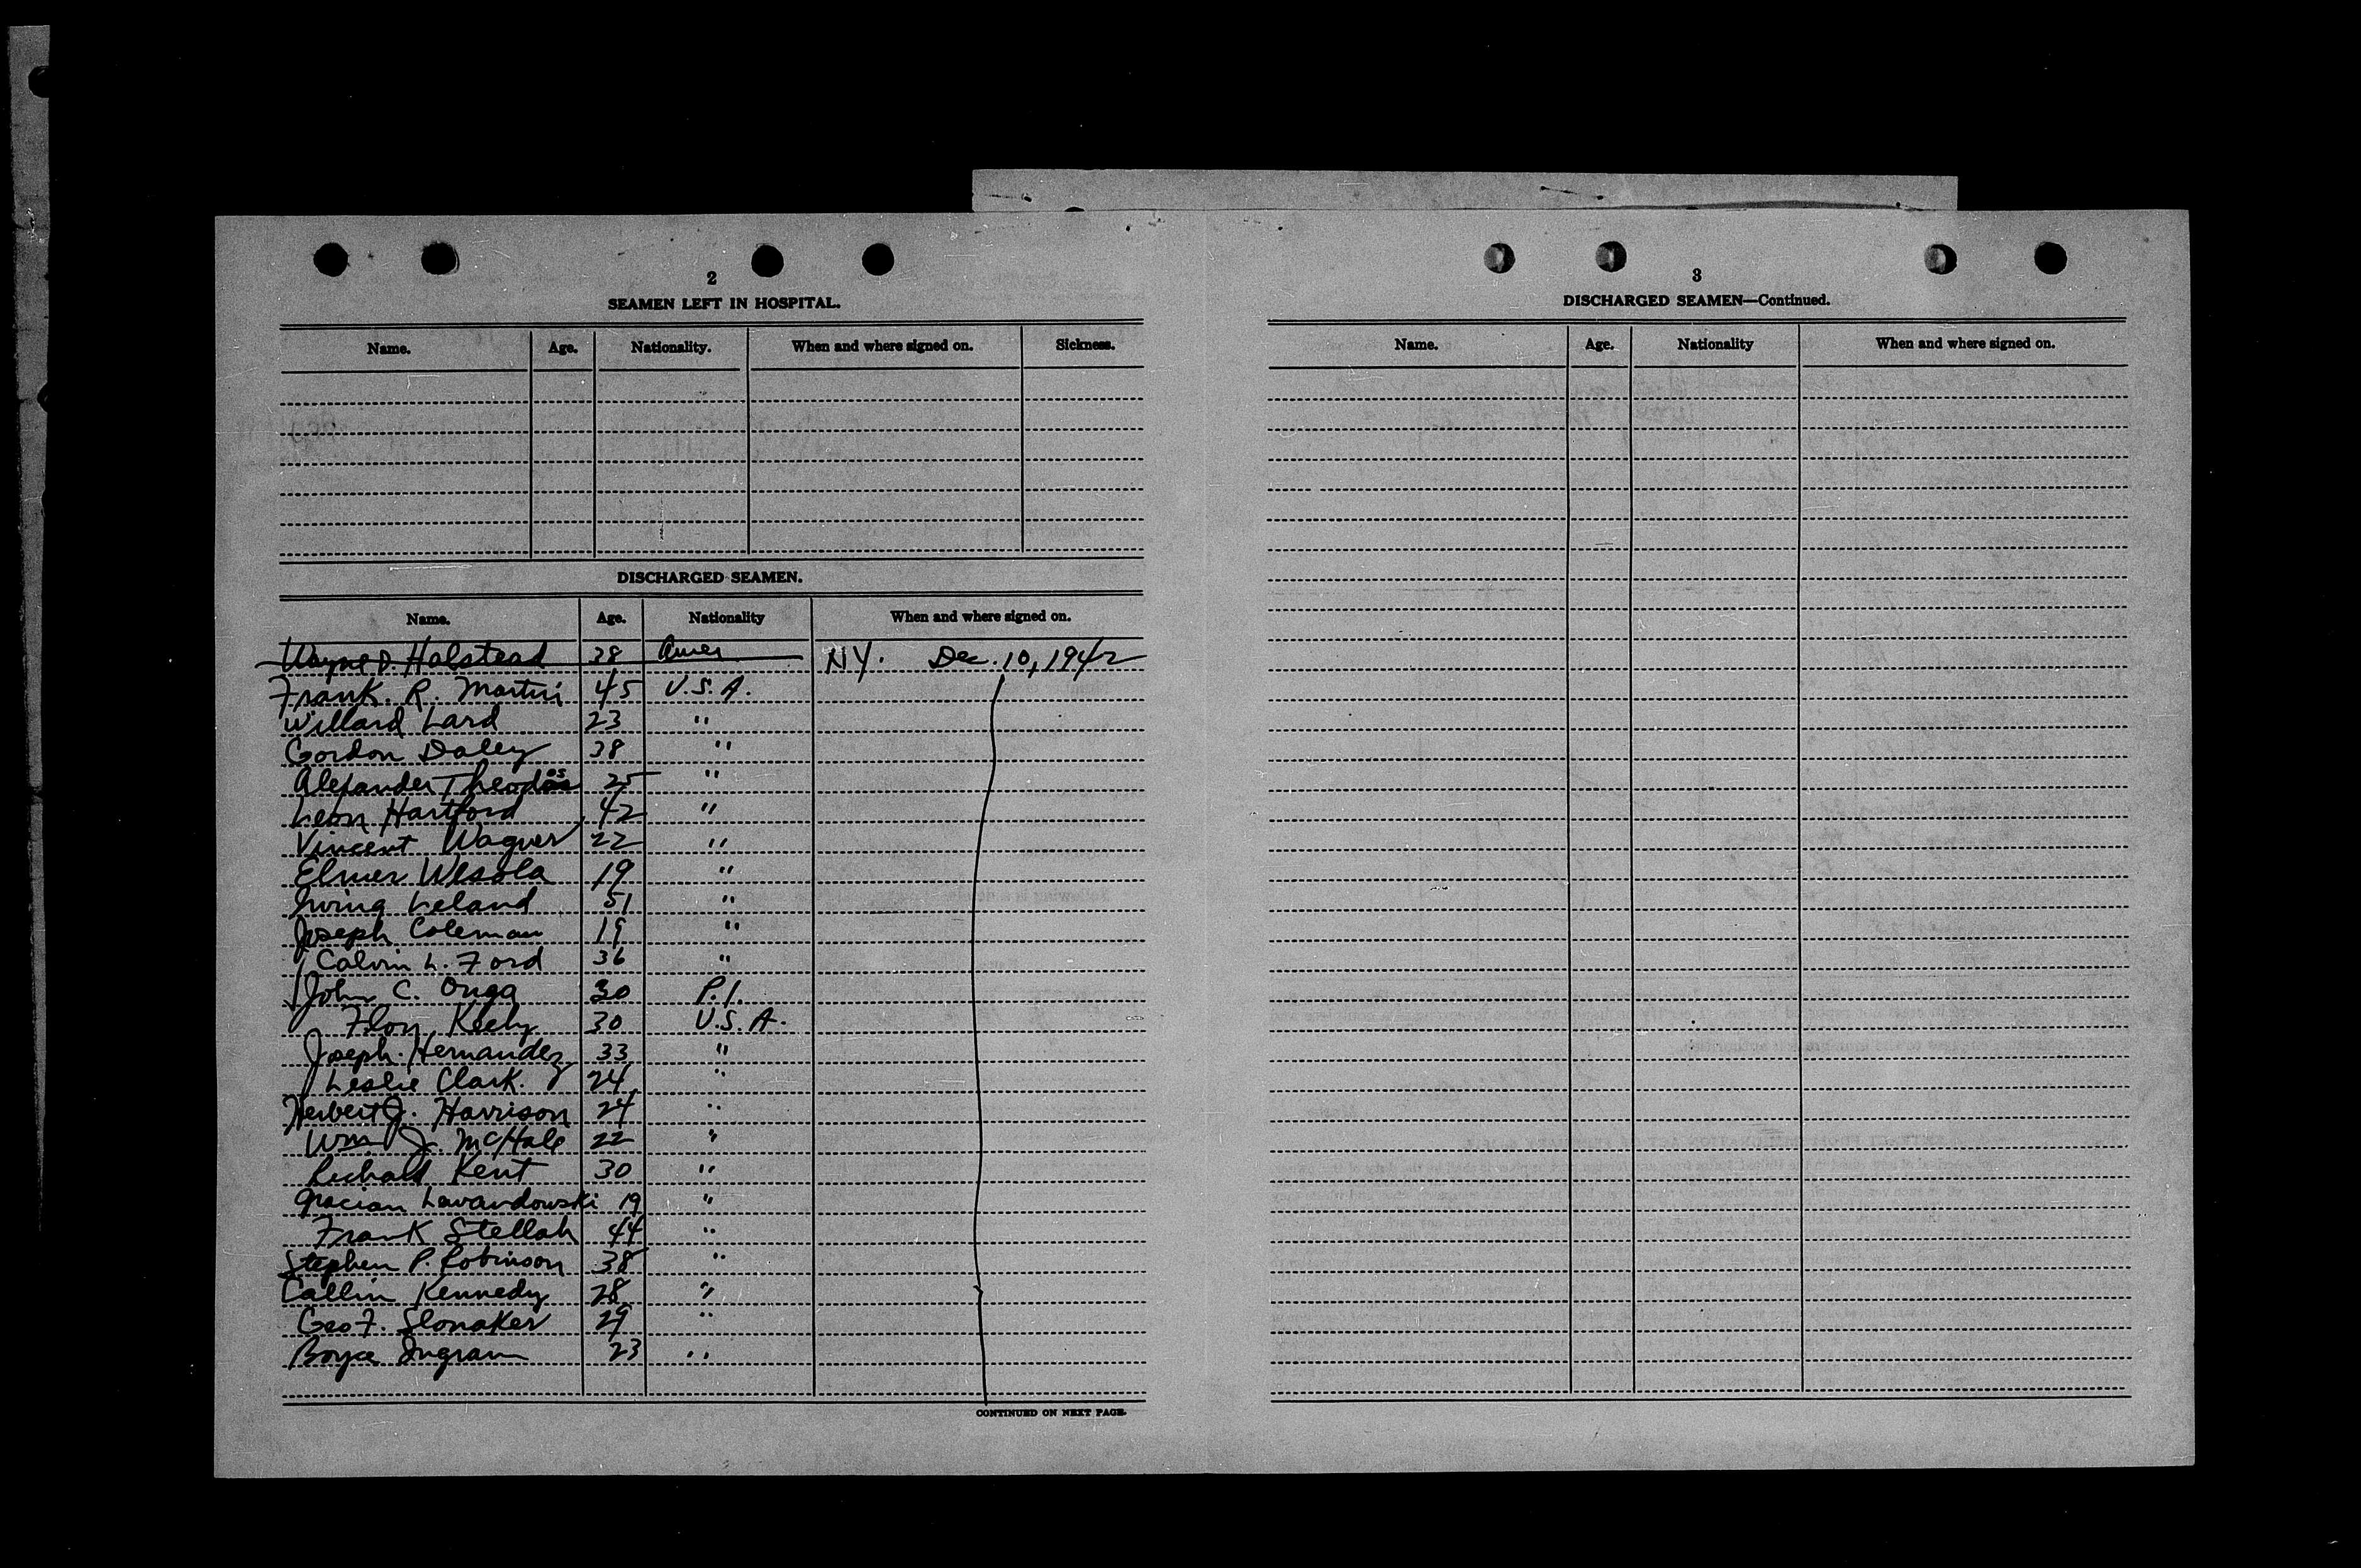 2
SEAMEN LEFT IN HOSPITAL.
Name. Age. Nationality. When and where signed on. Sickness.
DISCHARGED SEAMEN.
Name. Age. Nationality When and where signed on.
Wayne D. Halstead 38 Amer NY. Dec. 10, 1942
Frank. R. Martin 45 U.S.A.
Willard Lard 23 "
Gordon Daley 38 "
Alexander Theodos 25 "
Leon Hartford 42 "
Vincent Wagner 22 "
Elmer Wesola 19 "
Irving Leland 51 "
Joseph Coleman 19 "
Calvin L. Ford 36 "
John C. Onga 30 P.I.
Flon Keely 30 U.S.A.
Joseph Hernandez 33 "
Leslie Clark. 24 "
Herbert J. Harrison 24 "
Wm. J. McHale 22 "
Richard Kent 30 "
Gracian Lavandowski 19 "
Frank Stellah 44 "
Stephen P. Robinson 38 "
Callin Kennedy 28 "
Geo F. Slonaker 29 "
Boyce Ingram 23 "
CONTINUED ON NEXT PAGE.
3
DISCHARGED SEAMEN—Continued.
Name. Age. Nationality When and where signed on.